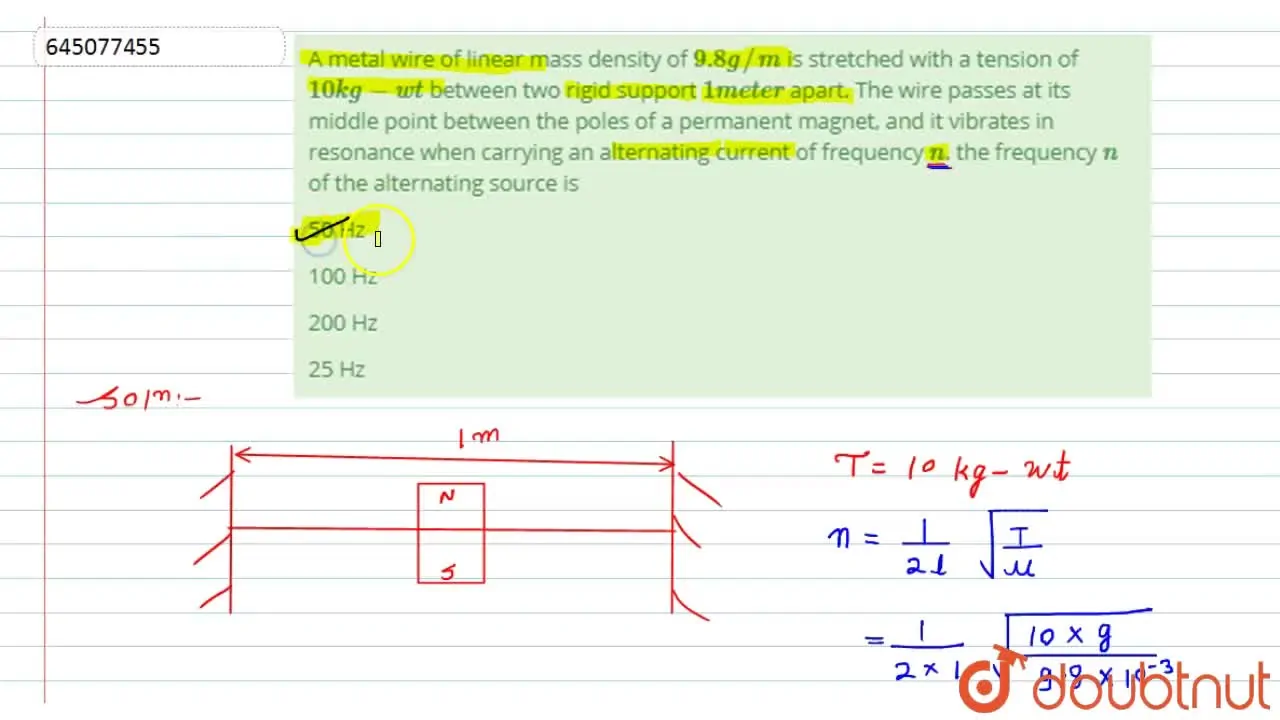 645077455
A metal wire of linear mass density of 9.8g/m is stretched with a tension of
10kg - wt between two rigid support 1meter apart. The wire passes at its
middle point between the poles of a permanent magnet, and it vibrates in
resonance when carrying an alternating current of frequency n. the frequency n
of the alternating source is
50 Hz
100 Hz
200 Hz
25 Hz
Soln:-
1m
N
S
T = 10 kg - wt
n = 1/2l √T/μ
= 1/2×1 √10 × g/9.8 × 10⁻³
doubtnut